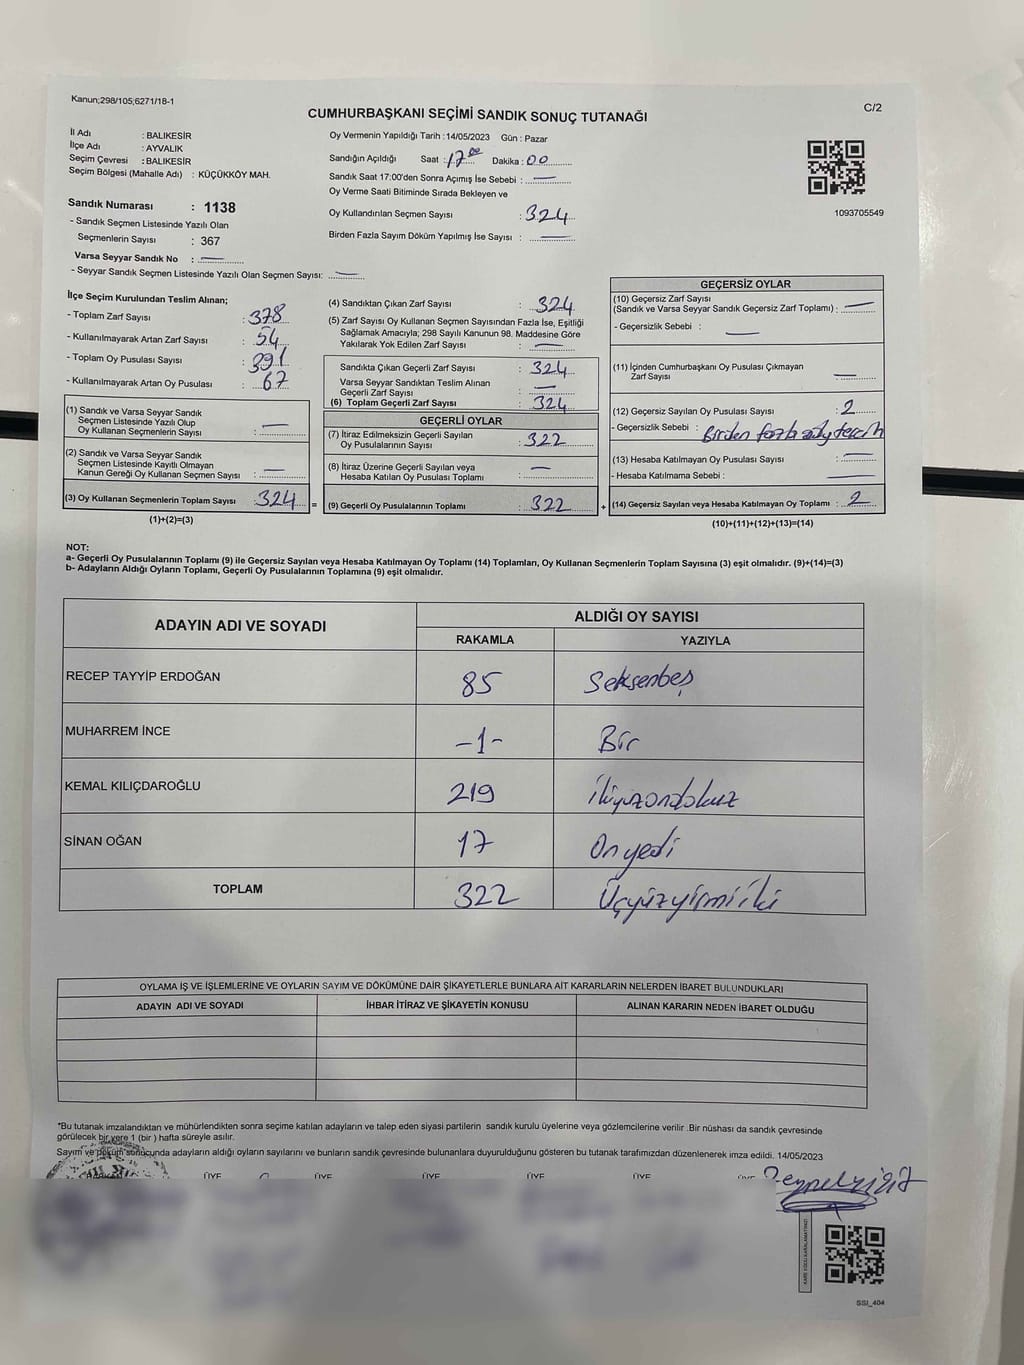 Kanun;298/105;6271/18-1
C/2
CUMHURBAŞKANI SEÇİMİ SANDIK SONUÇ TUTANAĞI
İl Adı : BALIKESİR
İlçe Adı : AYVALIK
Seçim Çevresi : BALIKESİR
Seçim Bölgesi (Mahalle Adı) : KÜÇÜKKÖY MAH.
Sandık Numarası : 1138
- Sandık Seçmen Listesinde Yazılı Olan
Seçmenlerin Sayısı : 367
Varsa Seyyar Sandık No : —
- Seyyar Sandık Seçmen Listesinde Yazılı Olan Seçmen Sayısı: —
Oy Vermenin Yapıldığı Tarih :14/05/2023 Gün : Pazar
Sandığın Açıldığı Saat : 17.00 Dakika : 00
Sandık Saat 17:00'den Sonra Açımış İse Sebebi : —
Oy Verme Saati Bitiminde Sırada Bekleyen ve
Oy Kullandırılan Seçmen Sayısı : 324
Birden Fazla Sayım Döküm Yapılmış İse Sayısı : —
1093705549
İlçe Seçim Kurulundan Teslim Alınan;
- Toplam Zarf Sayısı : 378
- Kullanılmayarak Artan Zarf Sayısı : 54
- Toplam Oy Pusulası Sayısı : 391
- Kullanılmayarak Artan Oy Pusulası : 67
(1) Sandık ve Varsa Seyyar Sandık
Seçmen Listesinde Yazılı Olup
Oy Kullanan Seçmenlerin Sayısı : —
(2) Sandık ve Varsa Seyyar Sandık
Seçmen Listesinde Kayıtlı Olmayan
Kanun Gereği Oy Kullanan Seçmen Sayısı : —
(3) Oy Kullanan Seçmenlerin Toplam Sayısı : 324 =
(1)+(2)=(3)
(4) Sandıktan Çıkan Zarf Sayısı : 324
(5) Zarf Sayısı Oy Kullanan Seçmen Sayısından Fazla İse, Eşitliği
Sağlamak Amacıyla; 298 Sayılı Kanunun 98. Maddesine Göre
Yakılarak Yok Edilen Zarf Sayısı : —
Sandıkta Çıkan Geçerli Zarf Sayısı : 324
Varsa Seyyar Sandıktan Teslim Alınan
Geçerli Zarf Sayısı : —
(6) Toplam Geçerli Zarf Sayısı : 324
GEÇERLİ OYLAR
(7) İtiraz Edilmeksizin Geçerli Sayılan
Oy Pusulalarının Sayısı : 322
(8) İtiraz Üzerine Geçerli Sayılan veya
Hesaba Katılan Oy Pusulası Toplamı : —
(9) Geçerli Oy Pusulalarının Toplamı : 322 +
GEÇERSİZ OYLAR
(10) Geçersiz Zarf Sayısı
(Sandık ve Varsa Seyyar Sandık Geçersiz Zarf Toplamı) : —
- Geçersizlik Sebebi : —
(11) İçinden Cumhurbaşkanı Oy Pusulası Çıkmayan
Zarf Sayısı : —
(12) Geçersiz Sayılan Oy Pusulası Sayısı : 2
- Geçersizlik Sebebi : Birden fazla aday tercih
(13) Hesaba Katılmayan Oy Pusulası Sayısı : —
- Hesaba Katılmama Sebebi : —
(14) Geçersiz Sayılan veya Hesaba Katılmayan Oy Toplamı : 2
(10)+(11)+(12)+(13)=(14)
NOT:
a- Geçerli Oy Pusulalarının Toplamı (9) ile Geçersiz Sayılan veya Hesaba Katılmayan Oy Toplamı (14) Toplamları, Oy Kullanan Seçmenlerin Toplam Sayısına (3) eşit olmalıdır. (9)+(14)=(3)
b- Adayların Aldığı Oyların Toplamı, Geçerli Oy Pusulalarının Toplamına (9) eşit olmalıdır.
ADAYIN ADI VE SOYADI
ALDIĞI OY SAYISI
RAKAMLA YAZIYLA
RECEP TAYYİP ERDOĞAN 85 Seksenbeş
MUHARREM İNCE -1- Bir
KEMAL KILIÇDAROĞLU 219 ikiyüzondokuz
SİNAN OĞAN 17 Onyedi
TOPLAM 322 Üçyüzyirmiiki
OYLAMA İŞ VE İŞLEMLERİNE VE OYLARIN SAYIM VE DÖKÜMÜNE DAİR ŞİKAYETLERLE BUNLARA AİT KARARLARIN NELERDEN İBARET BULUNDUKLARI
ADAYIN ADI VE SOYADI İHBAR İTİRAZ VE ŞİKAYETİN KONUSU ALINAN KARARIN NEDEN İBARET OLDUĞU
*Bu tutanak imzalandıktan ve mühürlendikten sonra seçime katılan adayların ve talep eden siyasi partilerin sandık kurulu üyelerine veya gözlemcilerine verilir .Bir nüshası da sandık çevresinde
görülecek bir yere 1 (bir ) hafta süreyle asılır.
Sayım ve döküm sonucunda adayların aldığı oyların sayılarını ve bunların sandık çevresinde bulunanlara duyurulduğunu gösteren bu tutanak tarafımızdan düzenlenerek imza edildi. 14/05/2023
BAŞKAN ÜYE ÜYE ÜYE ÜYE ÜYE ÜYE
SSI_404